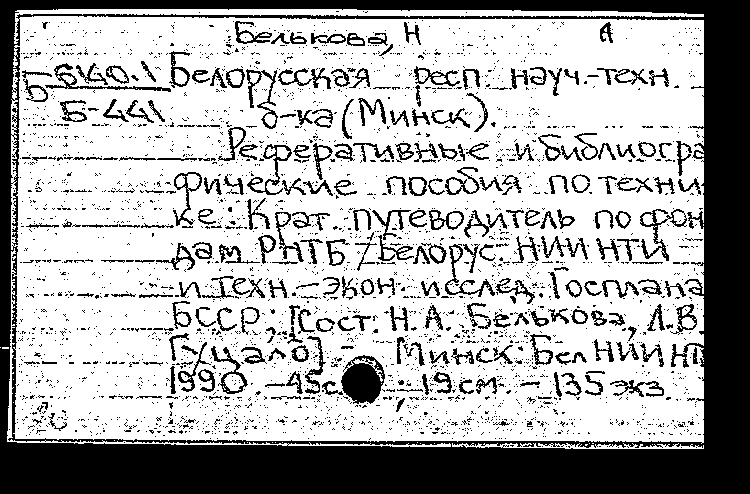 Белькова, Н А
Б 6140.1 Белорусская респ. науч.-техн.
Б-441 б-ка (Минск).
Реферативные и библиогра
фические пособия по техни
ке: Крат. путеводитель по фон
дам РНТБ / Белорус. НИИ НТИ
и техн.-экон. исслед. Госплана
БССР; [Сост. Н.А. Белькова, Л.В.
Гуцало] - Минск: Бел НИИ НТ
1990. - 45с ; 19 см. - 135 экз.